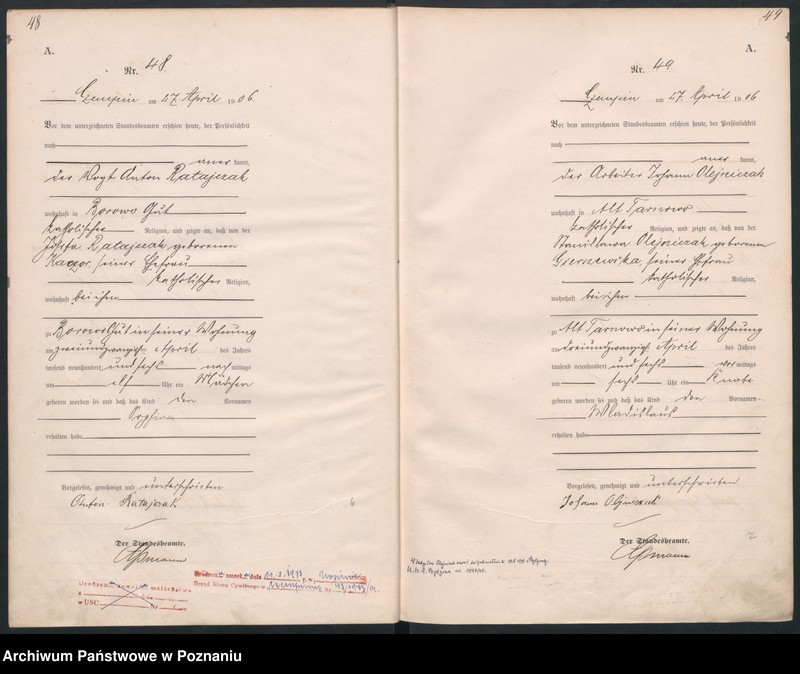 48
A.
Nr. 48.
Czempin am 27. April 1906.
Vor dem unterzeichneten Standesbeamten erschien heute, der Persönlichkeit
nach
kannt,
der Vogt Anton Ratajczak
wohnhaft in Borowo Gut
katholischer Religion, und zeigte an, daß von der
Josefa Ratajczak geborenen
seiner Ehefrau
katholischer Religion,
wohnhaft bei ihm
zu Borowo Gut in seiner Wohnung
am zweiundzwanzigst. April des Jahres
tausend neunhundert und sechs nachmittags
um elf Uhr ein Mädchen
geboren worden sei und daß das Kind den Vornamen
erhalten habe
Vorgelesen, genehmigt und unterschrieben
Anton Ratajczak
Der Standesbeamte.
6
49
A.
Nr. 49
Czempin am 27. April 1906
Vor dem unterzeichneten Standesbeamten erschien heute, der Persönlichkeit
nach
kannt,
der Arbeiter Johann Olejniczak
wohnhaft in Alt Tarnowo
katholischer Religion, und zeigte an, daß von der
Stanislawa Olejniczak geborenen
seiner Ehefrau
katholischer Religion,
wohnhaft bei ihm
zu Alt Tarnowo in seiner Wohnung
am dreiundzwanzigst. April des Jahres
tausend neunhundert und sechs vormittags
um sechs Uhr ein Knabe
geboren worden sei und daß das Kind den Vornamen
Wladislaus
erhalten habe
Vorgelesen, genehmigt und unterschrieben
Johann
Der Standesbeamte.
7
Archiwum Państwowe w Poznaniu